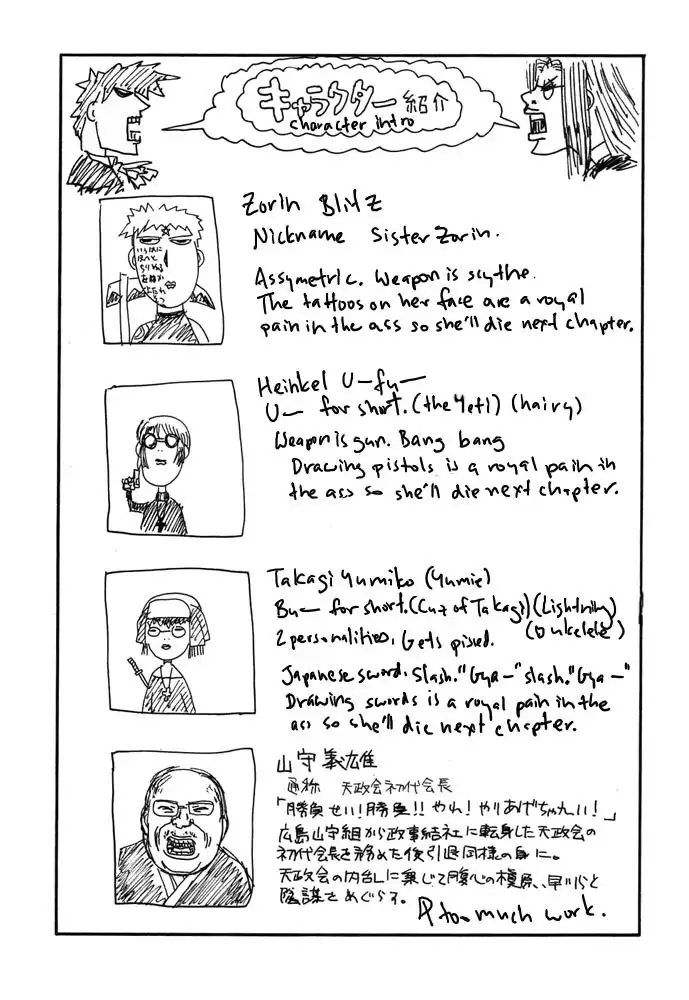 キャラクター紹介
character intro
Zorin Blitz
Nickname Sister Zorin.
Assymetric. Weapon is scythe.
The tattoos on her face are a royal
pain in the ass so she'll die next chapter.
いろはに
ほへと
ちりぬる
Heinkel Uーfuー
Uー for short. (the Yeti) (hairy)
Weapon is gun. Bang bang
Drawing pistols is a royal pain in
the ass so she'll die next chapter.
Takagi Yumiko (Yumie)
Buー for short. (Cuz of Takagi) (Lightning)
(Ukelele)
2 personalities. Gets pissed.
Japanese sword. Slash. "Gyaー" slash. "Gyaー"
Drawing swords is a royal pain in the
ass so she'll die next chapter.
山守義雄
通称 天政会初代会長
「勝負せい!勝負!!やれ!やりあげちゃれい!」
広島山守組から政事結社に転身した天政会の
初代会長を務めた後引退同様の身に。
天政会の内乱に乗じて腹心の槙原、早川らと
陰謀をめぐらす。
too much work.